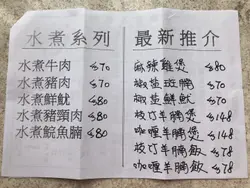 水煮系列
水煮牛肉 $70
水煮豬肉 $70
水煮鮮魷 $80
水煮豬頸肉 $80
水煮鯇魚腩 $80
最新推介
麻辣雞煲 $80
椒盐斑腩 $70
椒盐鮮魷 $70
枝竹羊腩煲 $148
咖喱羊腩煲 $148
枝竹羊腩飯 $78
咖喱羊腩飯 $78